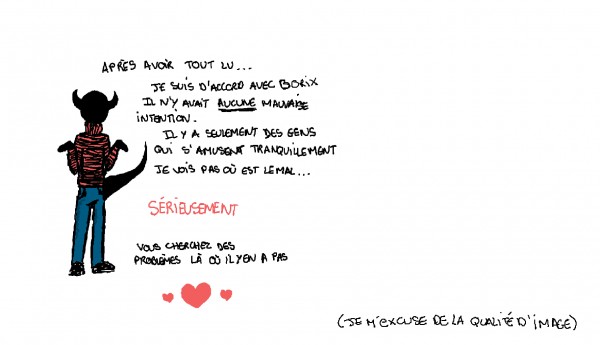 APRÈS AVOIR TOUT LU...
JE SUIS D'ACCORD AVEC BORIX
IL N'Y AVAIT AUCUNE MAUVAISE
INTENTION.
IL Y A SEULEMENT DES GENS
QUI S'AMUSENT TRANQUILLEMENT
JE VOIS PAS OÙ EST LE MAL...
SÉRIEUSEMENT
VOUS CHERCHEZ DES
PROBLÈMES LÀ OÙ IL Y EN A PAS
(JE M'EXCUSE DE LA QUALITÉ D'IMAGE)